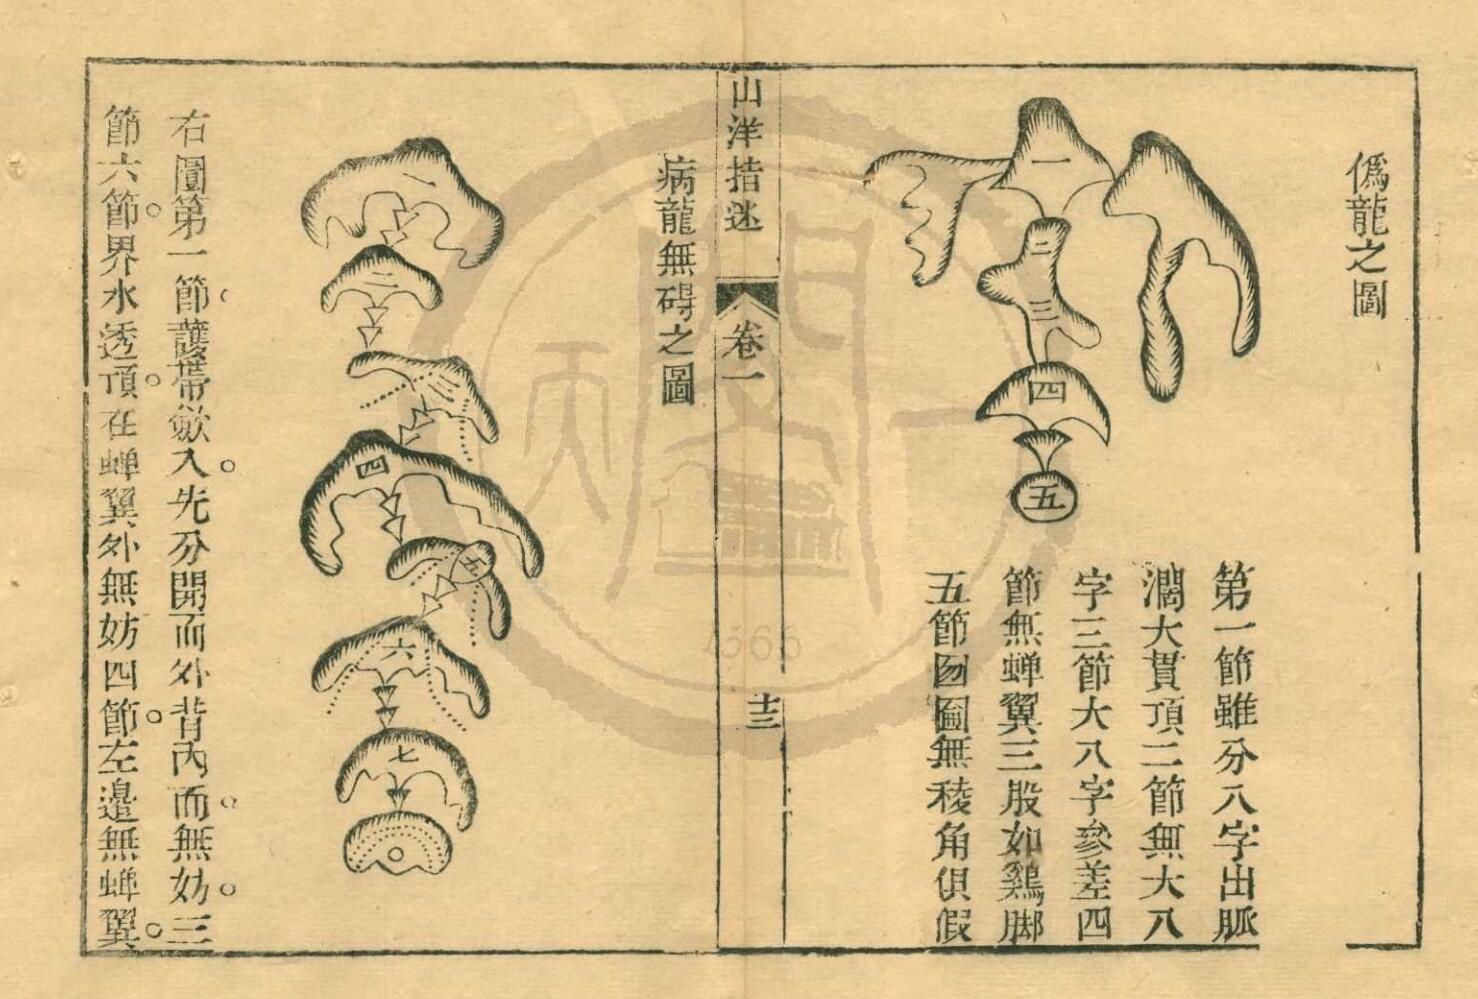 僞龍之圖
一
二
三
四
五
第一節雖分八字出脈
濶大貫頂二節無大八
字三節大八字參差四
節無蟬翼三股如鷄脚
五節囫圇無稜角俱假
山洋指迷
卷一
十三
病龍無碍之圖
一
二
三
四
五
六
七
右圖第一節護帶歛入先分開而外背內面無妨三
節六節界水透頂在蟬翼外無妨四節左邉無蟬翼
1566